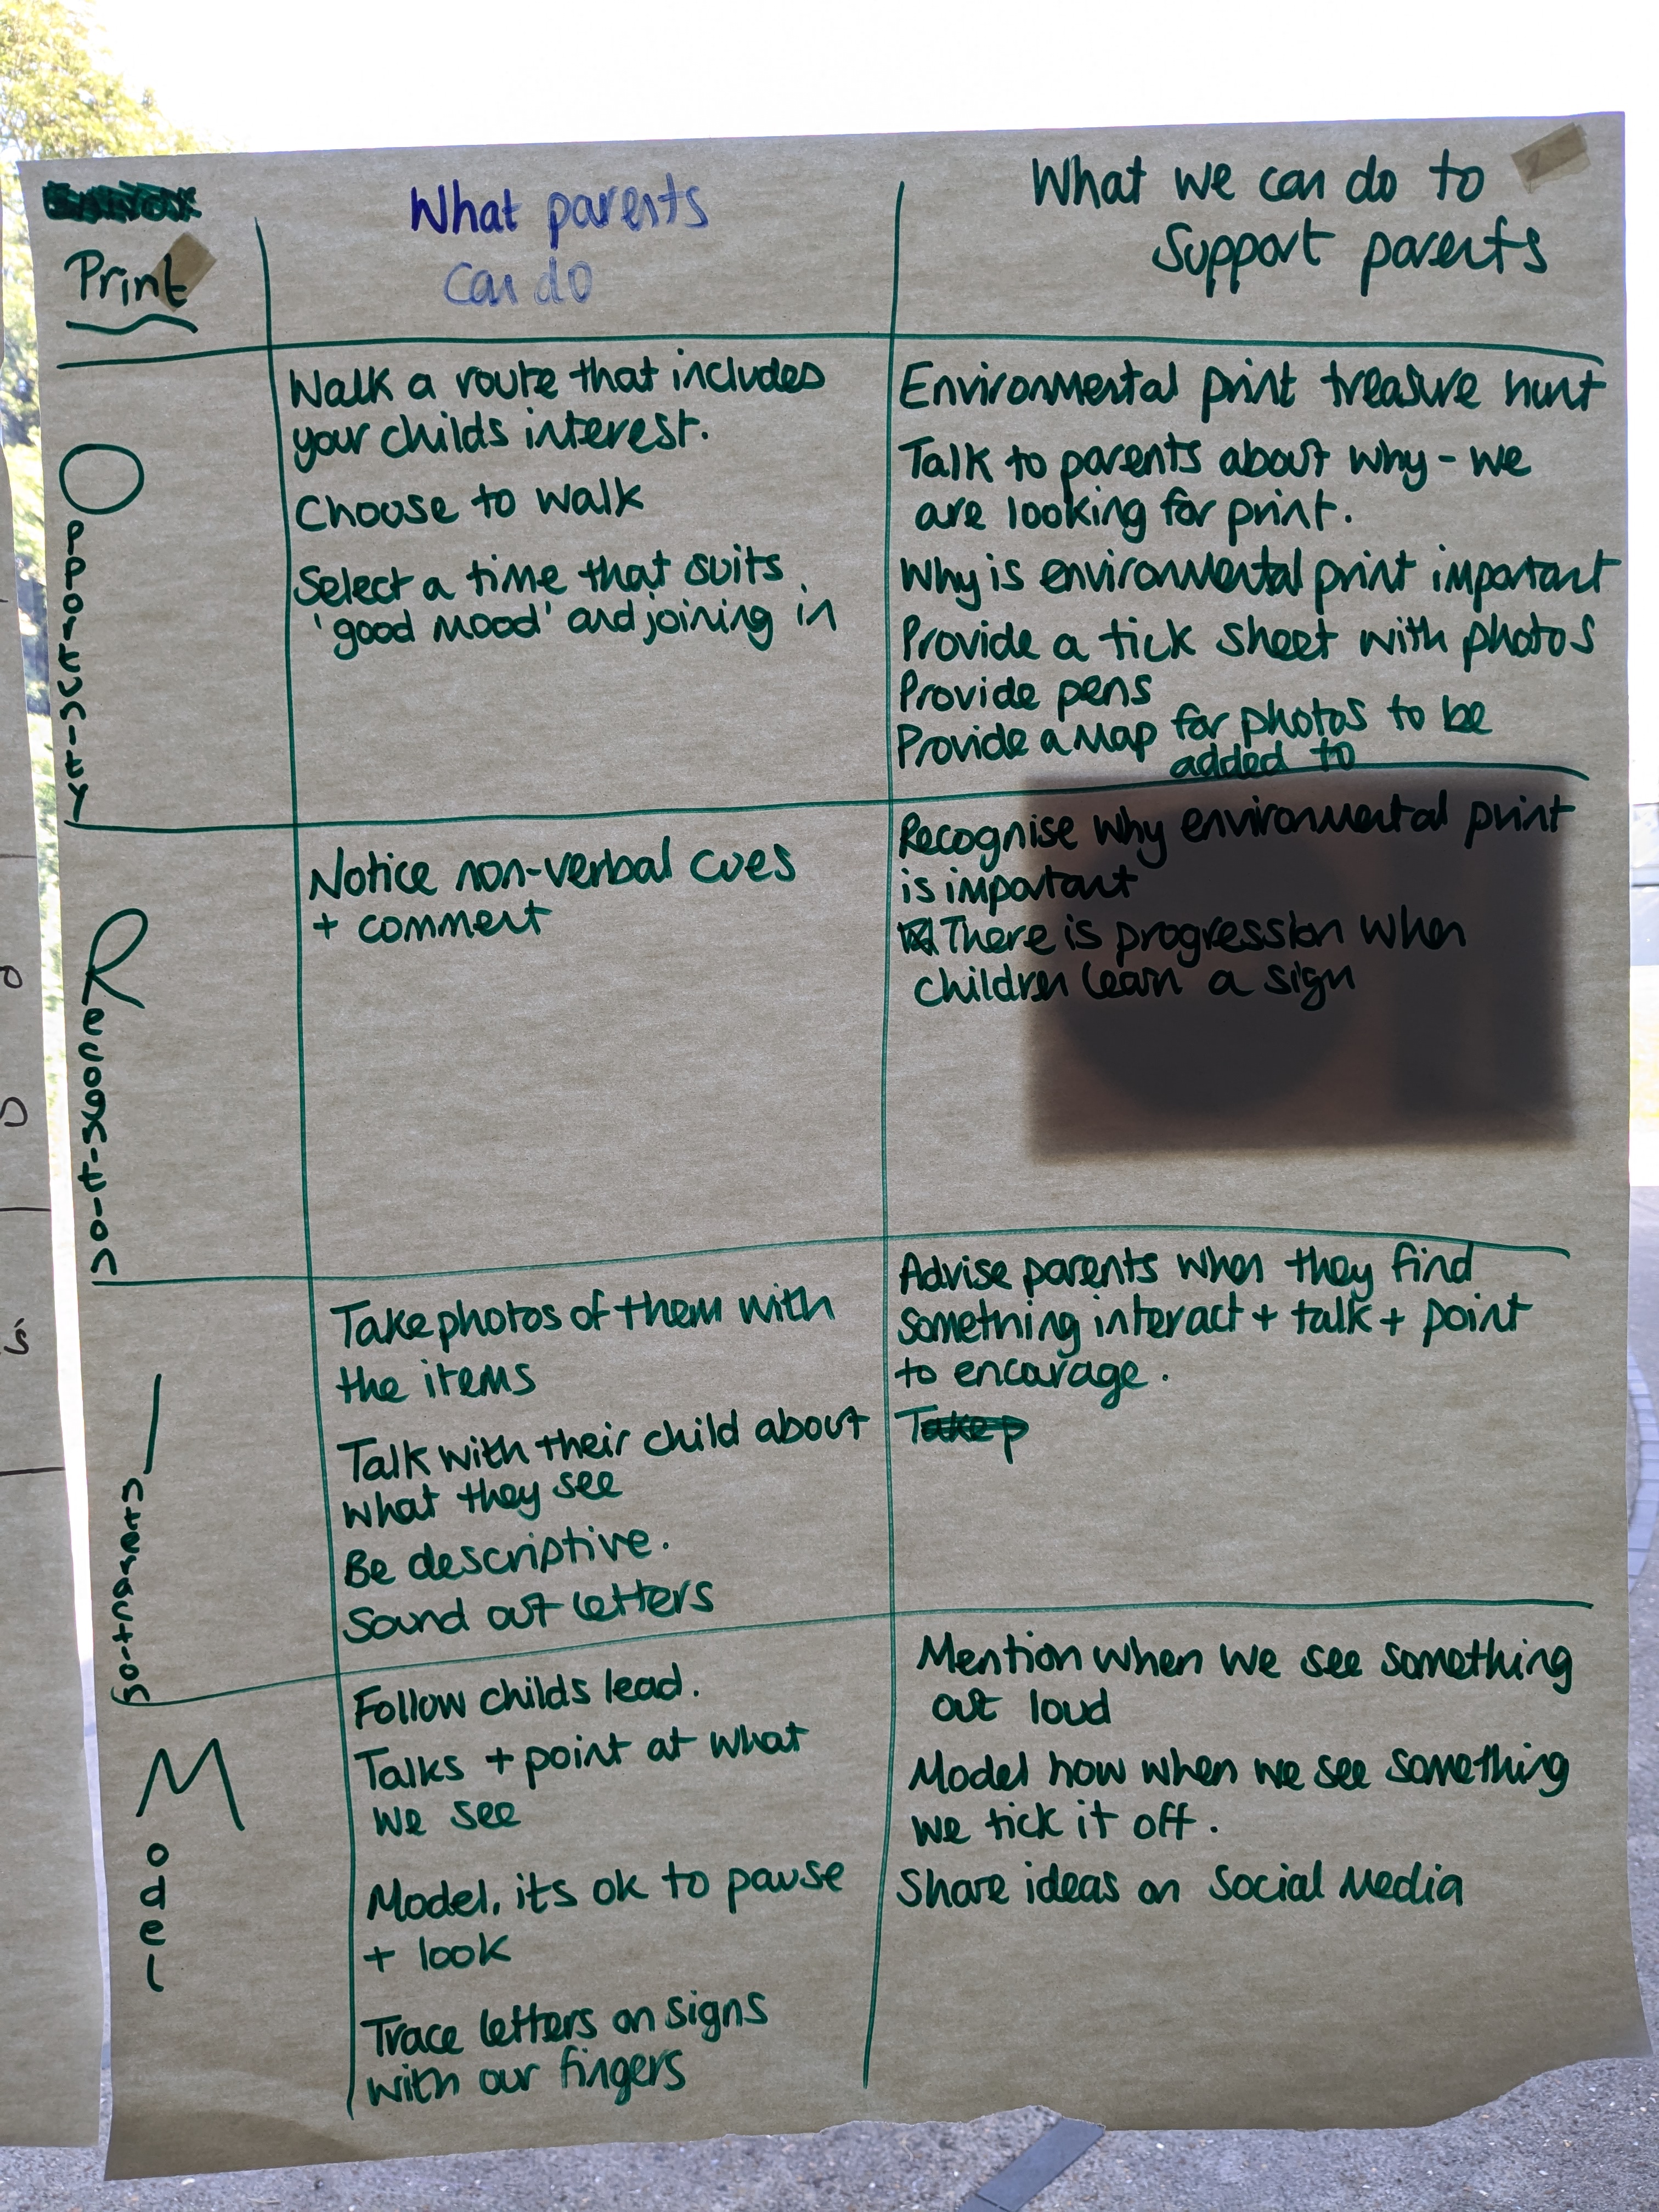 Print
What parents
can do
What we can do to
support parents
Opportunity
Walk a route that includes
your childs interest.
Choose to walk
Select a time that suits
'good mood' and joining in
Environmental print treasure hunt
Talk to parents about why - we
are looking for print.
Why is environmental print important
Provide a tick sheet with photos
Provide pens
Provide a map for photos to be
added to
Recognition
Notice non-verbal cues
+ comment
Recognise why environmental print
is important
There is progression when
children learn a sign
Interaction
Take photos of them with
the items
Talk with their child about
what they see
Be descriptive.
Sound out letters
Advise parents when they find
something interact + talk + point
to encourage.
Take p
Model
Follow childs lead.
Talks + point at what
we see
Model, its ok to pause
+ look
Trace letters on signs
with our fingers
Mention when we see something
out loud
Model how when we see something
we tick it off.
Share ideas on Social Media